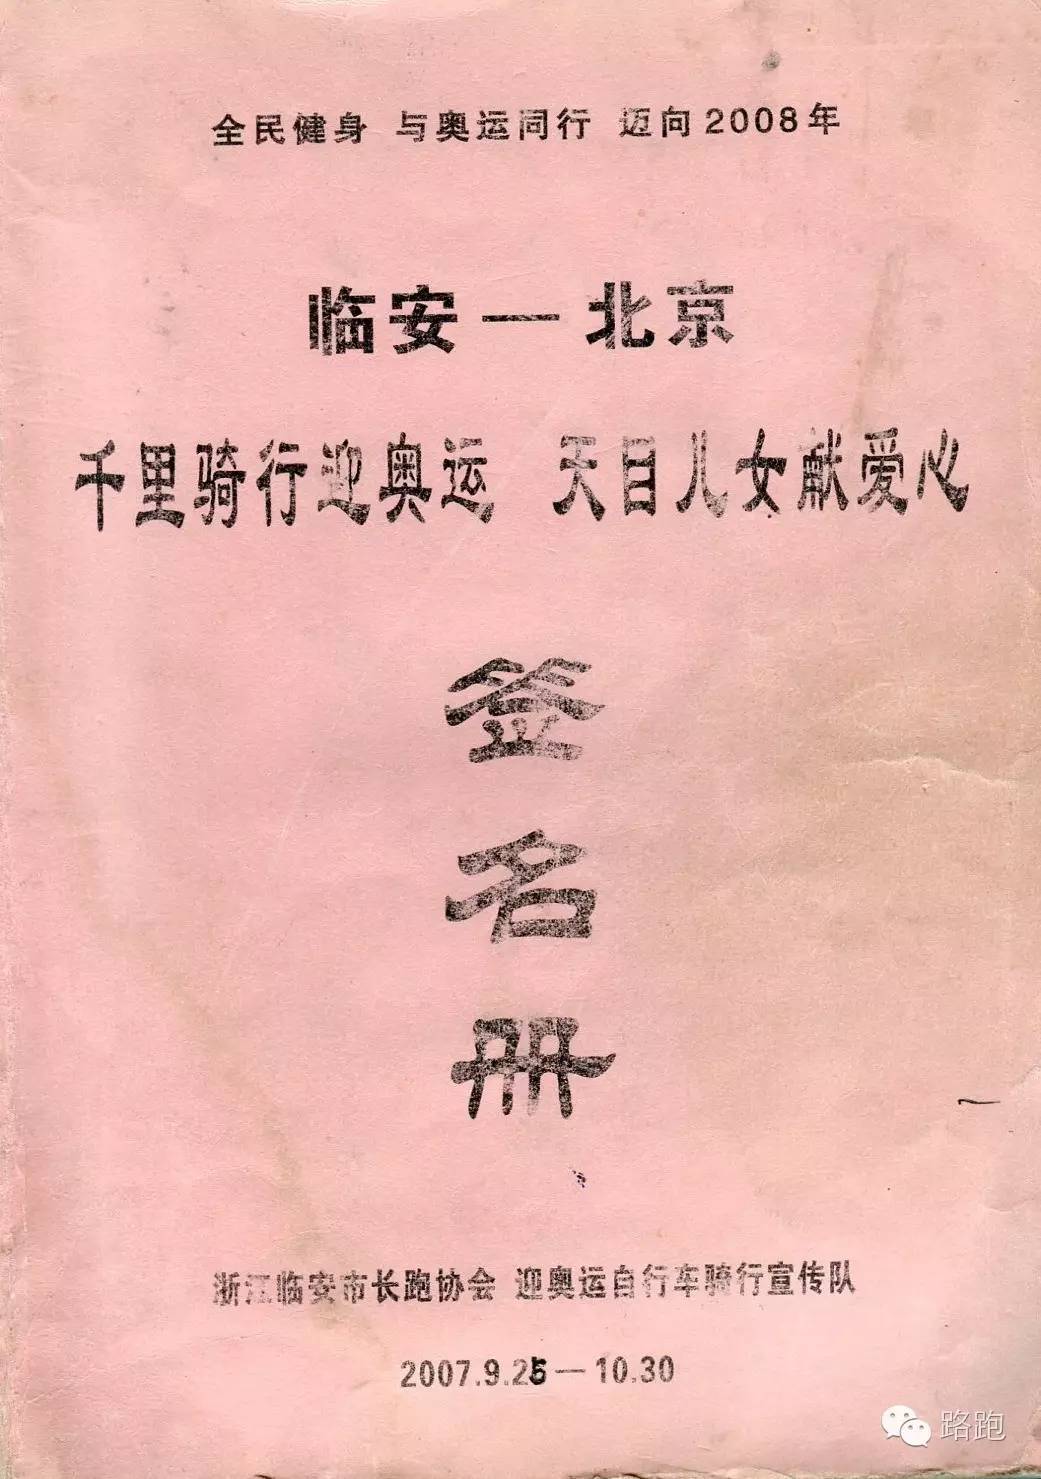 全民健身 与奥运同行 迈向2008年
临安—北京
千里骑行迎奥运 天目儿女献爱心
签
名
册
浙江临安市长跑协会 迎奥运自行车骑行宣传队
2007.9.25—10.30
路跑